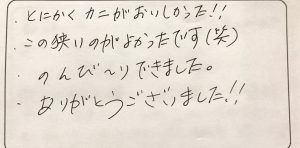 ・とにかく カニがおいしかった!!
・この狭いのがよかったです(笑)
・のんび〜りできました。
ありがとうございました!!